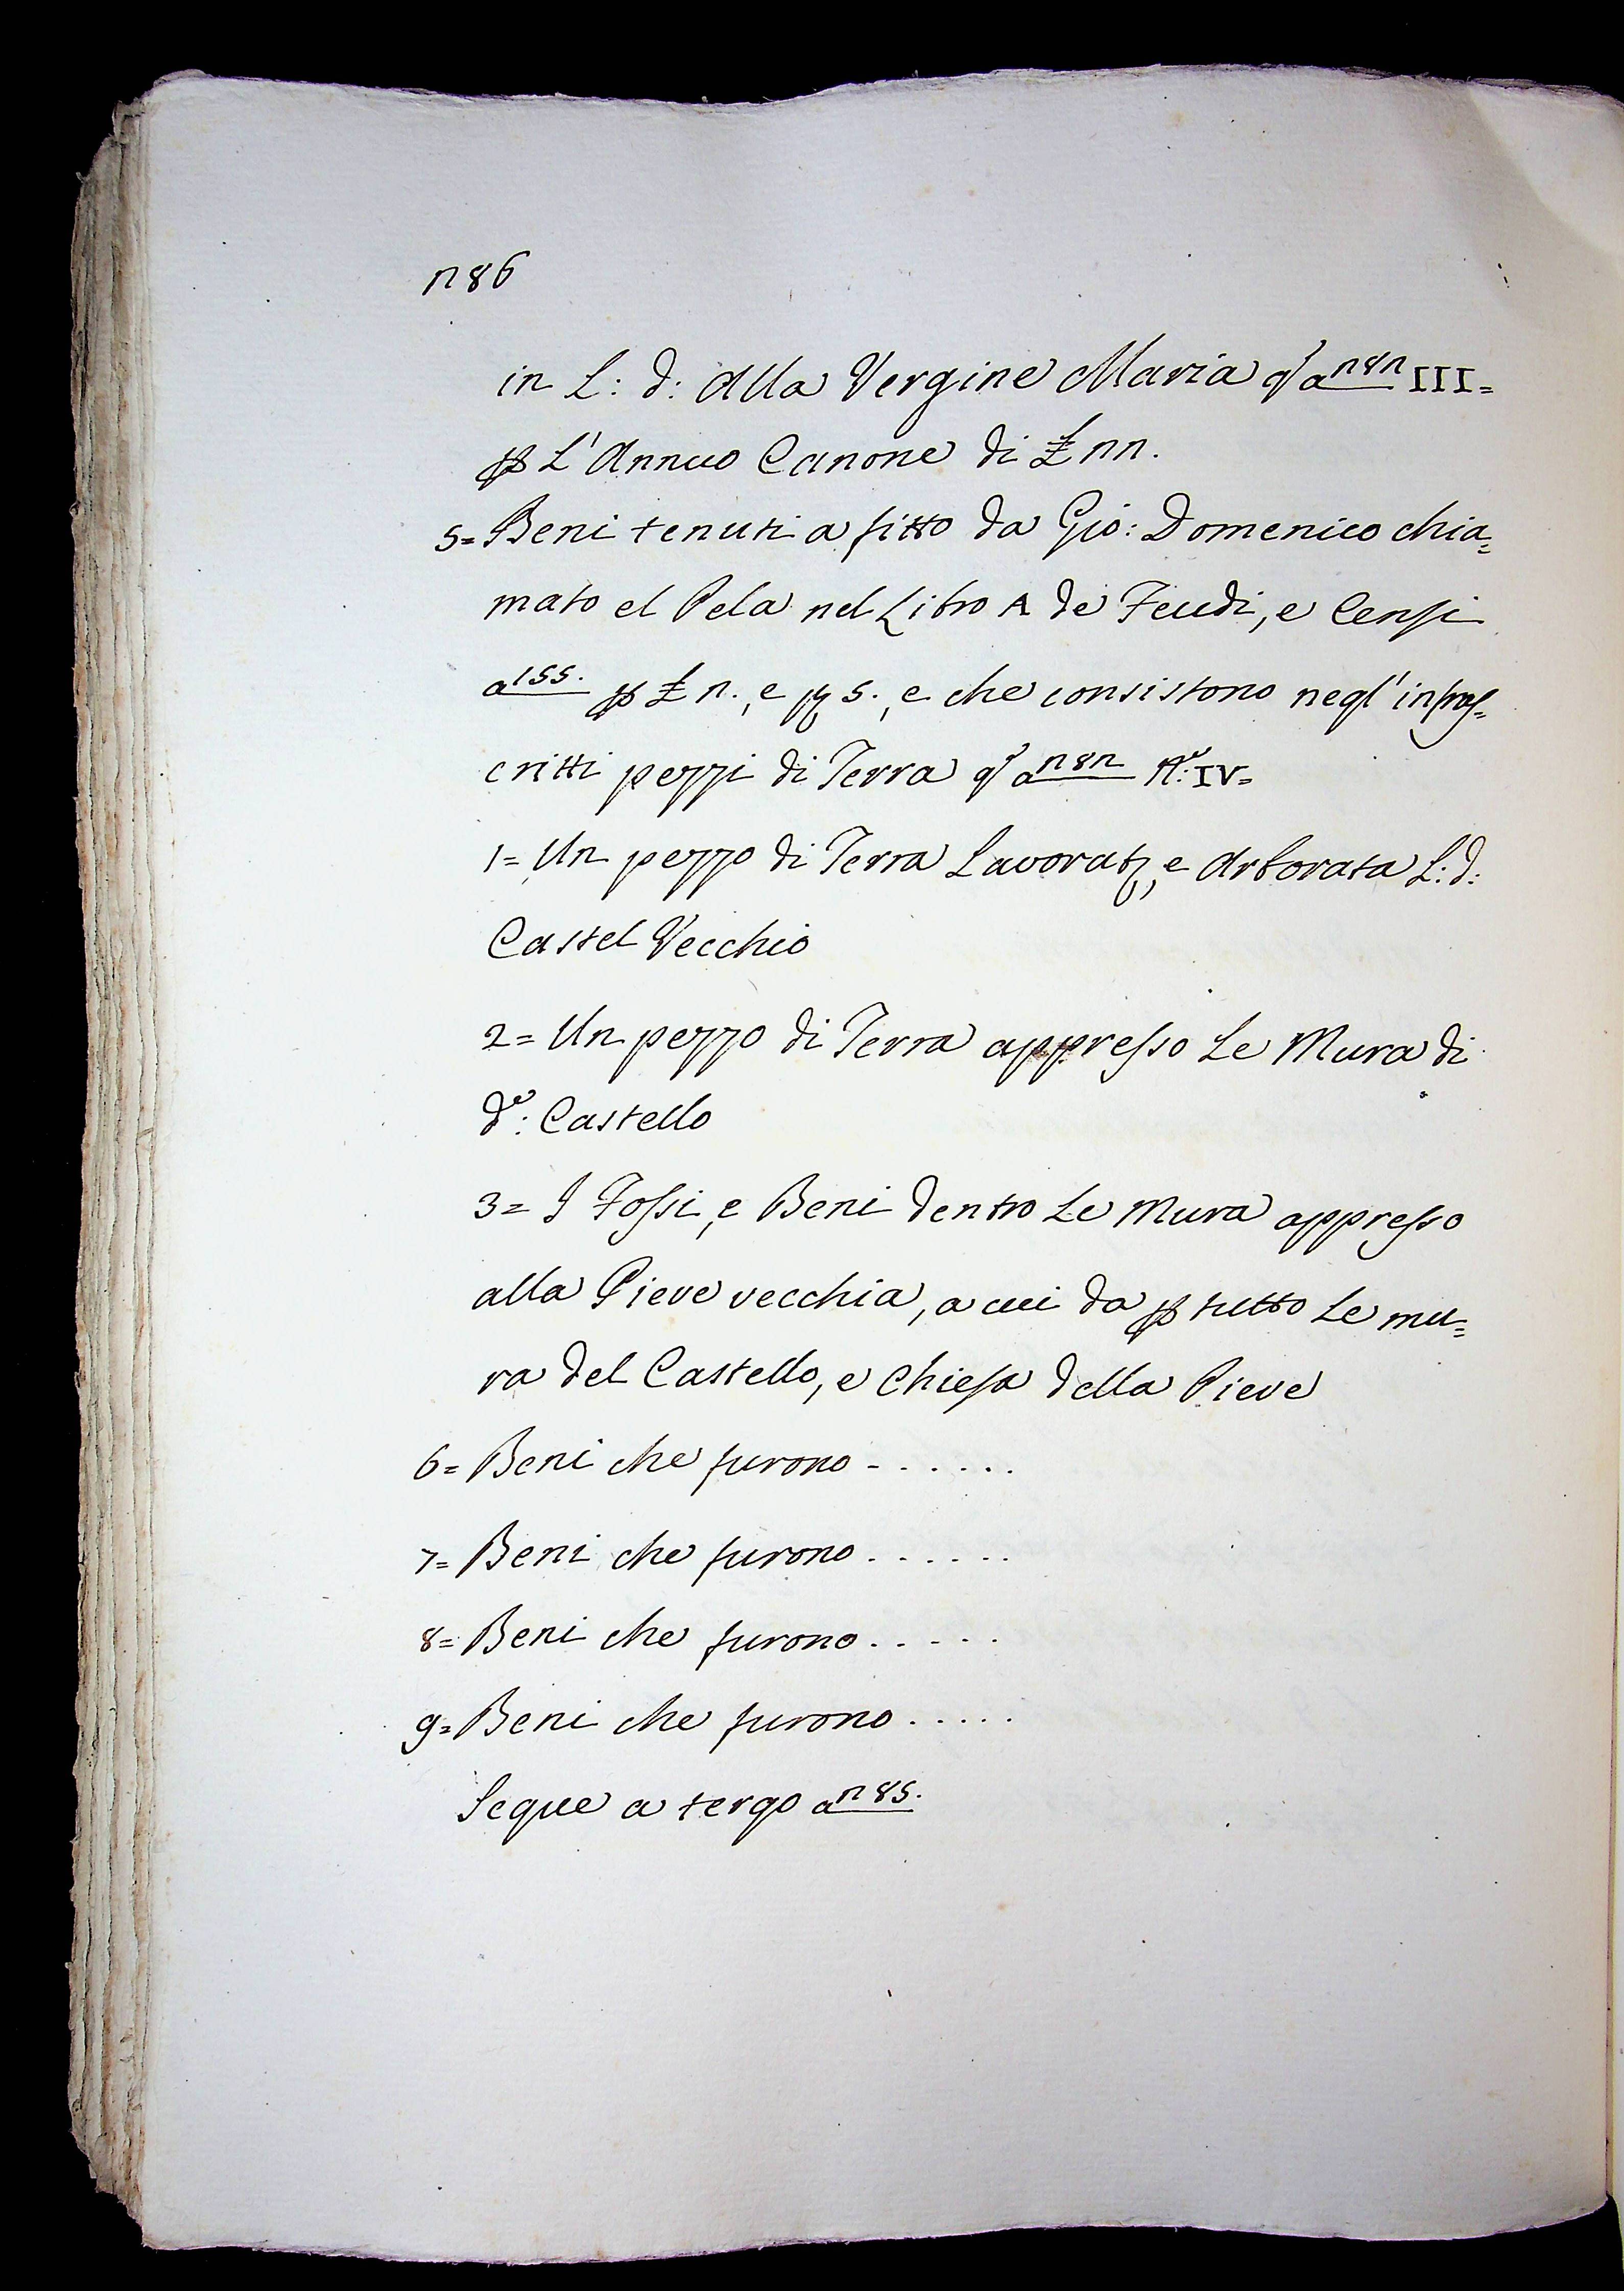 486
in L: d: alla Vergine Maria q̃ a 484 III=
ꝑ L'Annuo Canone di £ 44.
5= Beni tenuti a fitto da Gio: Domenico chia=
mato el Pela nel Libro A de Feudi, e Censi
a 155. ꝑ £ 4., e β 5., e che consistono negl'infras=
critti pezzi di Terra q̃ a 484 N.º IV=
1= Un pezzo di Terra Lavorat., e Arborata L: d:
Castel Vecchio
2= Un pezzo di Terra appresso Le Mura di
d.º: Castello
3= I Fossi, e Beni dentro Le Mura appresso
alla Pieve vecchia, a cui da ꝑ tutto Le mu=
ra del Castello, e Chiesa della Pieve
6= Beni che furono - . . . . .
7= Beni che furono . . . . . .
8= Beni che furono . . . . .
9= Beni che furono . . . . .
Segue a tergo a 485.